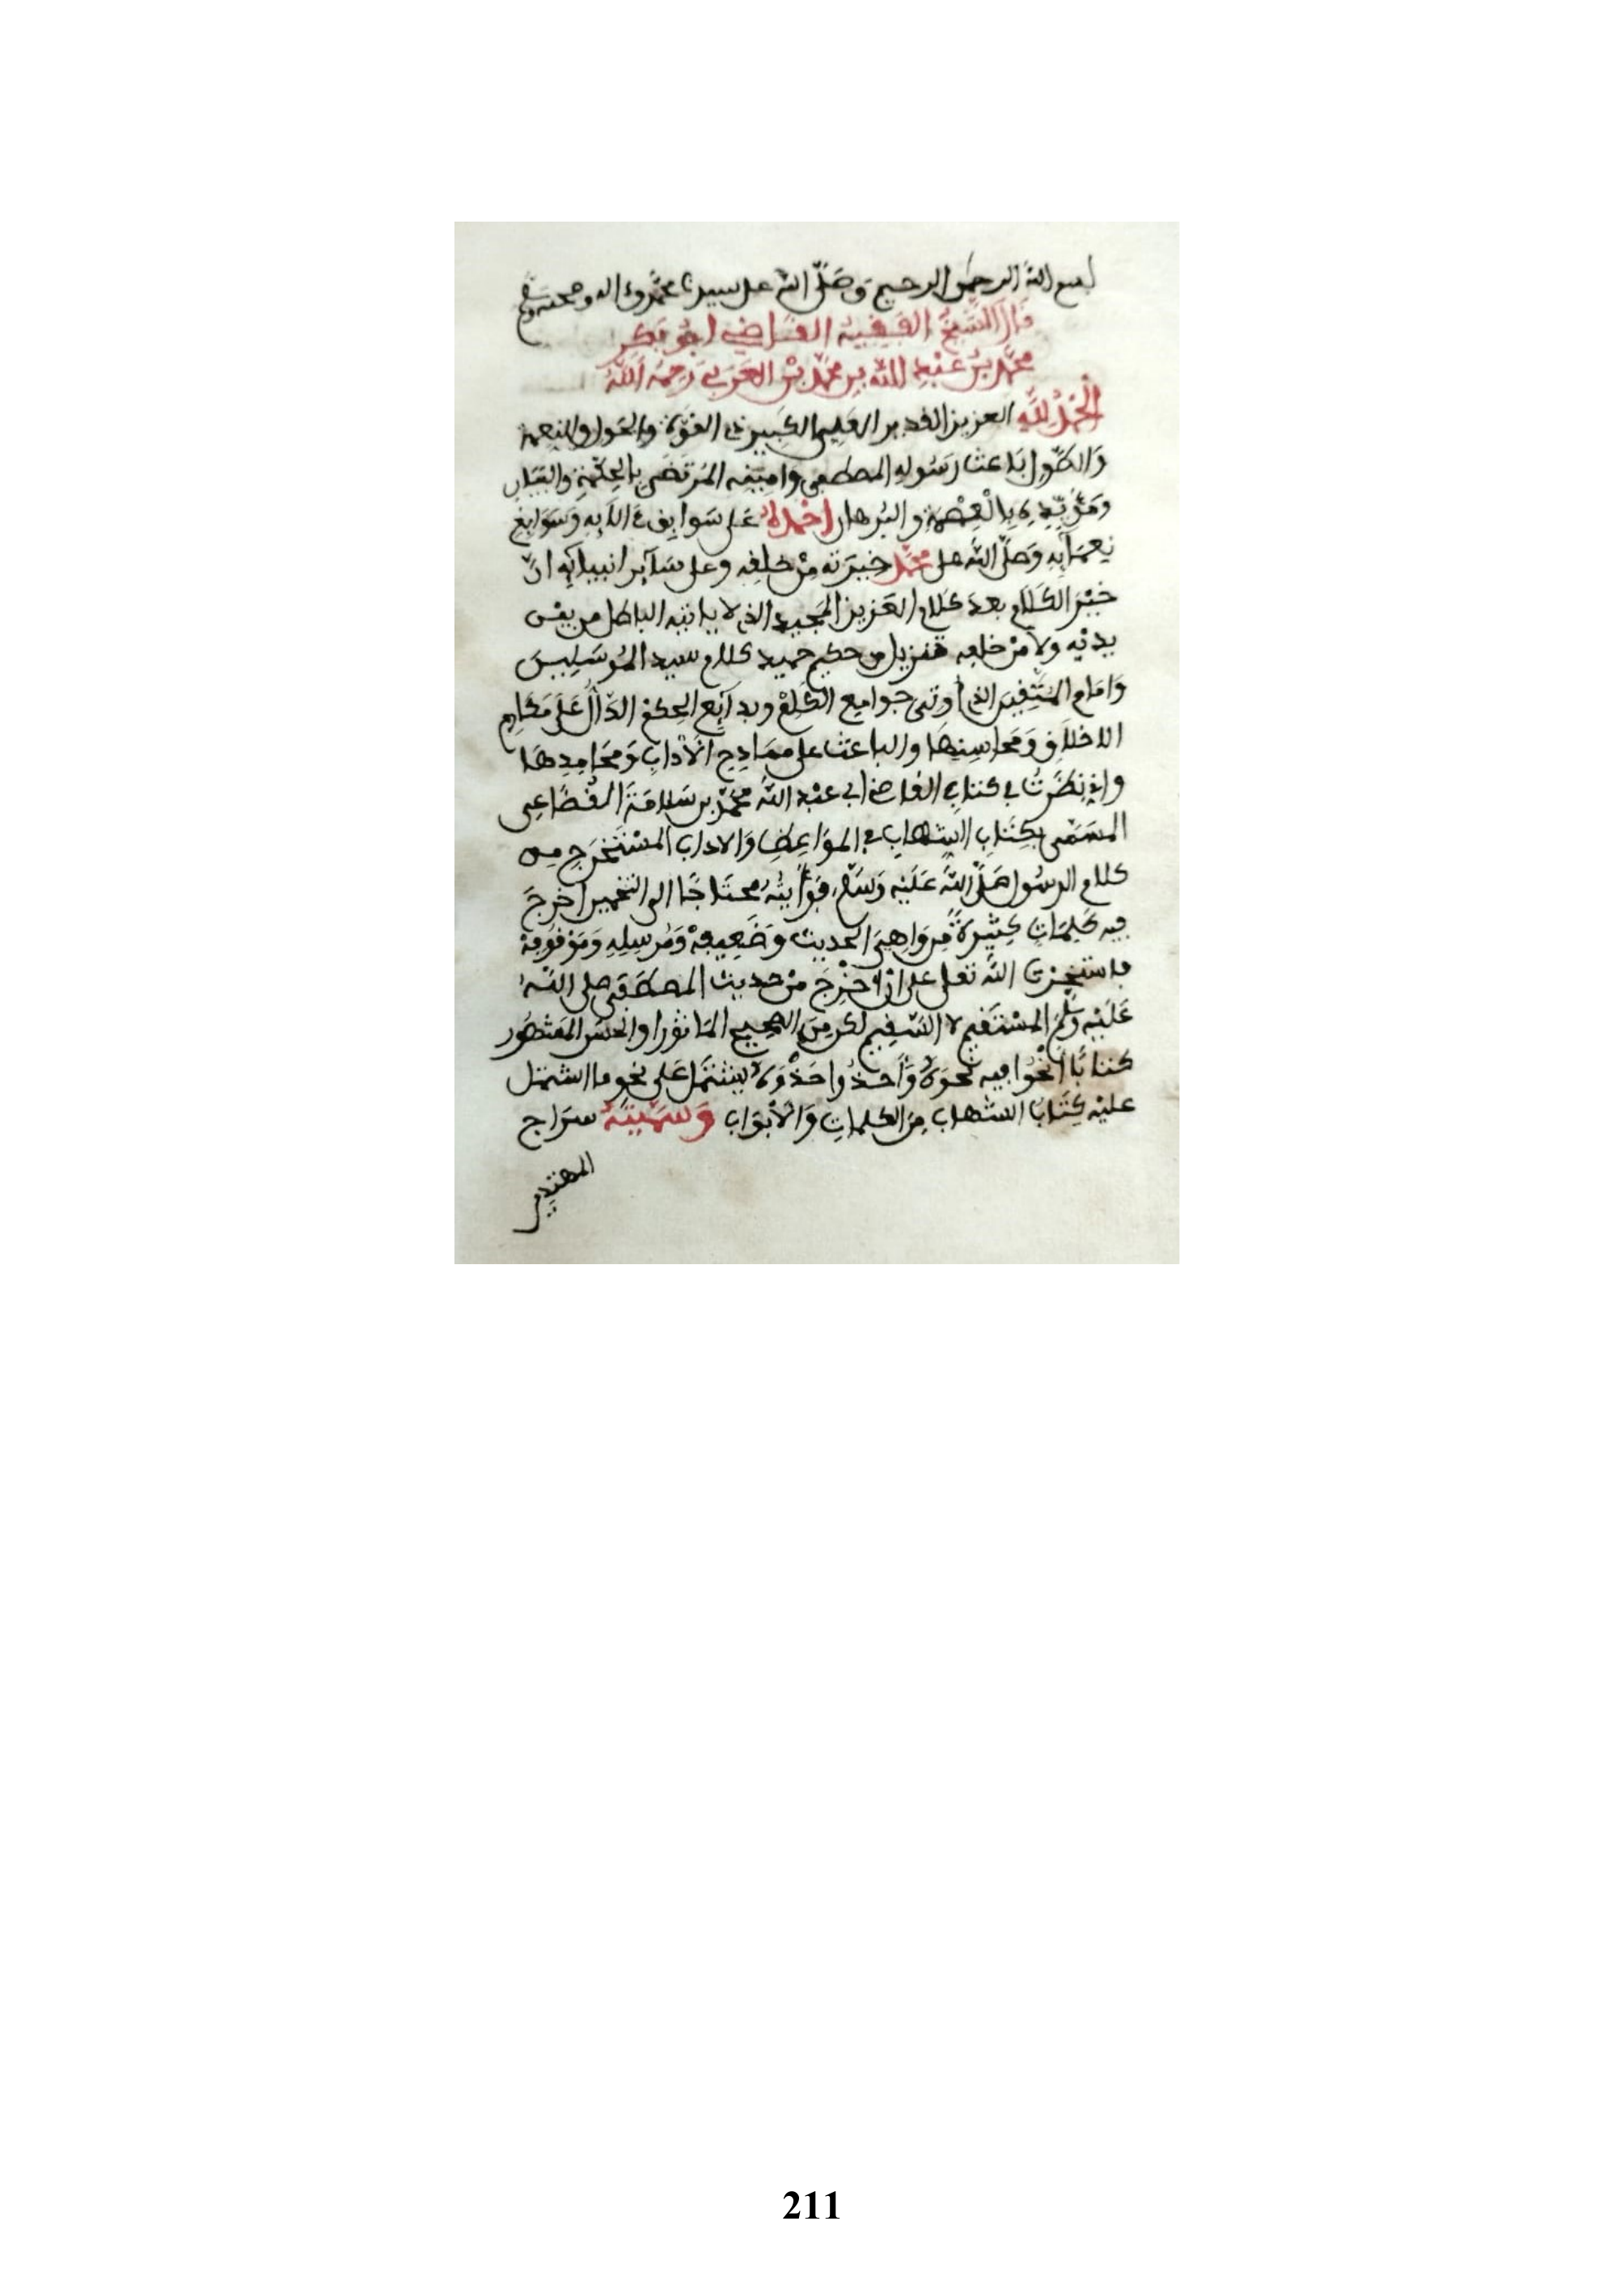 بسم الله الرحمن الرحيم وصَلَّى الله على سيدنا محمّد وءاله وصحبه وسلم
قال الشَّيخُ الفَقِيهُ القَاضِي أبُو بَكر
محمَّد بنُ عَبْدِ الله بن محمَّد بْن العَرَبي رَحِمَهُ اللهُ
الْحَمْدُ لِلَّهِ العزيز القدير العَلِي الكَبِير ذي القُوَّة والحَول والنعمة
وَالطَّوْل بَاعث رَسُوله المصطفى وامينه المُرتَضَى بالحِكْمَةِ والبَيَان
ومُؤَيِّدِهِ بِالْعِصْمَةِ والبُرهان احْمَدهُ عَلى سَوابق ءَالآيِهِ وَسَوَابِغ
نِعمَآيِهِ وَصَلَّى اللهُ على محمَّد خيرَتِه مِنْ خلقِه وعلى سَآير انبيايِه انَّ
خَيْرَ الكَلَام بعدَ كَلام العَزيز المَجيد الذي لا ياتيه الباطل من بيْن
يديْه ولا مِنْ خلفه تنزيل من حكيم حميد كلام سيد المُرسَلِين
وَامام المتَّقِين الذي اوتي جوامع الكَلِمْ وبدآئع الحِكم الدَّالُّ عَلَى مَكَارِم
الاخلَاقِ وَمَحاسِنِهَا والبَاعث على ممَادِح الْأدابِ وَمَحَامِدِهَا
واني نظَرْتُ في كتابِ القاضي ابي عبْد اللهُ محمَّد بن سَلامَةَ القُضَاعِي
المسَمَّى بكِتَابِ الشِّهابِ في المَوَاعِظ وَالاداب المسْتَخرَج من
كلام الرسُول صَلَّى اللهُ عَلَيْهِ وَسَلَّم فَرَأيْتُهُ محتَاجًا الى التخير اخرجَ
فيه كَلِمَاتٍ كثِيرَةً مِن وَاهِي الحديث وَضَعِيفِهْ وَمُرسَلِهِ وَمَوْقُوفِهْ
فاستخرت اللهَ تعلى على انْ اخْرِجَ منْ حديث المصطَفَى صلى اللهُ
عَلَيْهِ وَسَلَّمَ المسْتَقيم لا السَّقِيم لكن مِنَ الصحيح المَاثُور او الحَسَن المَشهُور
كتابًا أنْحُوا فيه نَحْوَهُ وَأحذُوا حَذْوَهُ يشتَمل عَلى نحْوِ ما اشتمل
عليْه كِتَابُ الشهاب مِنَ الكلماتِ وَالْأبْوَاب وَسَمَّيْتُهُ سرَاج
المهتدين
211